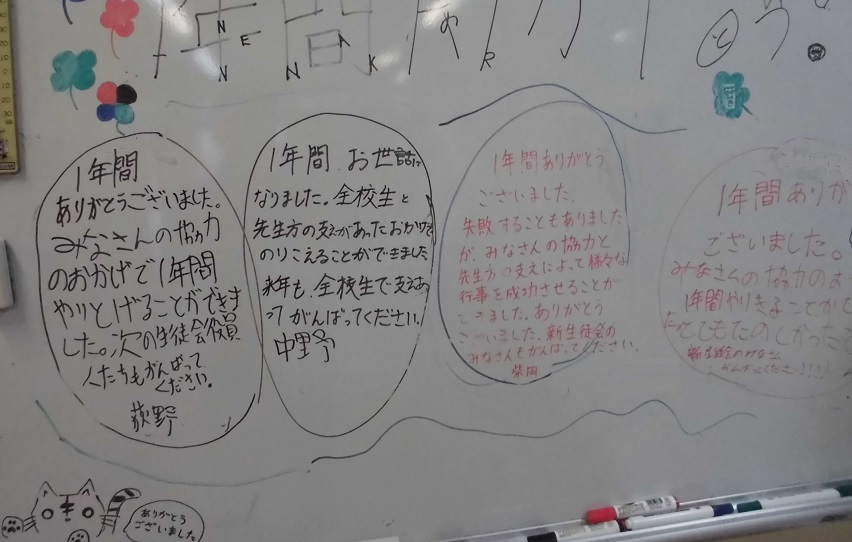 年間
N
E
N
N
A
K
R
と
1年間
ありがとうございました。
みなさんの協力
のおかげで1年間
やりとげることができま
した。次の生徒会役員
くたちもがんばって
ください。
荻野
1年間 お世話に
なりました。全校生と
先生方の支えがあったおかげで
のりこえることができました
来年も、全校生で支えあ
ってがんばってください。
中野
1年間ありがとう
ございました。
失敗することもありました
が、みなさんの協力と
先生方の支えによって様々な
行事を成功させることが
できました。ありがとう
ございました。新生徒会の
みなさんもがんばってください。
柴田
1年間ありが
ございました。
みなさんの協力のお
1年間やりきることがで
とてもたのしかったで
新生徒会のみなさん
がんばってください!!!!
ありがとう
ございました